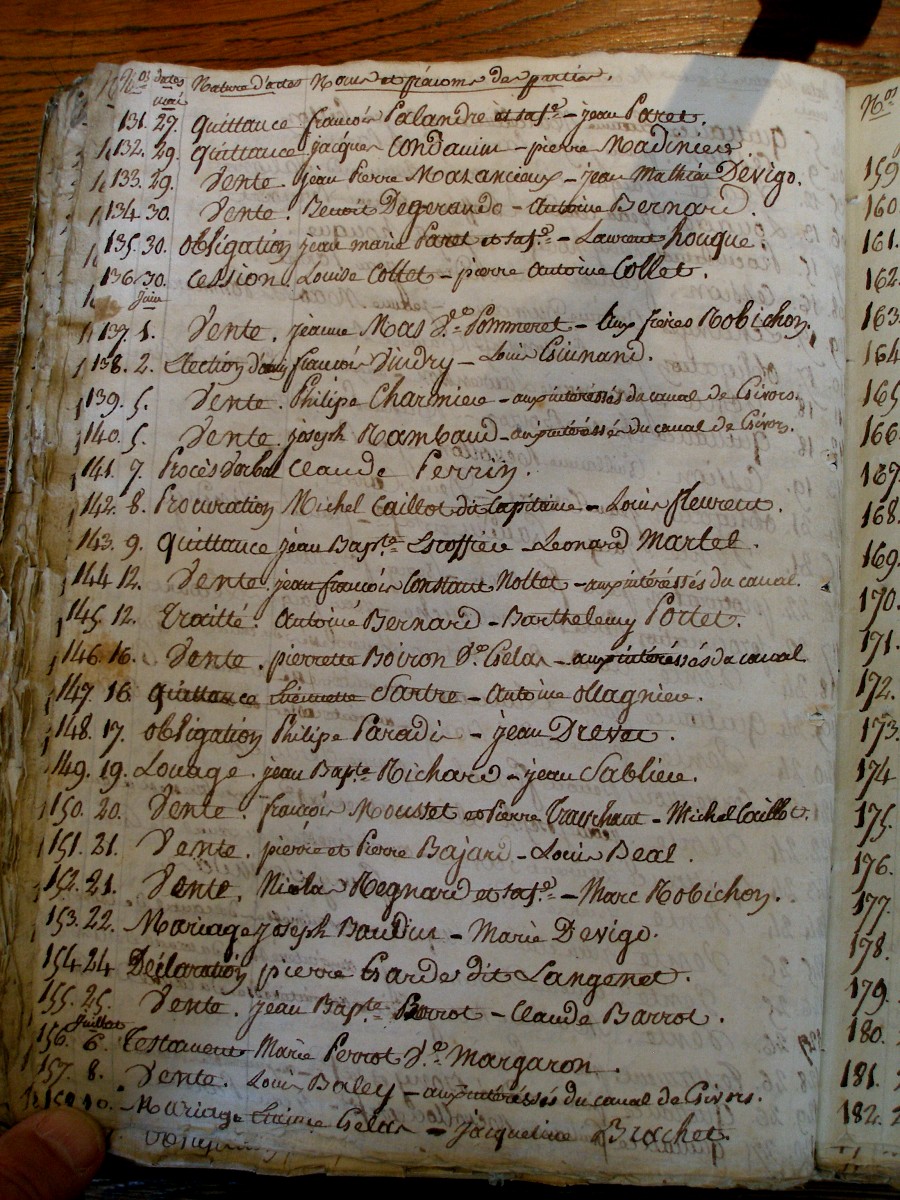 Nos dates Nature d'actes Noms et prénoms des parties.
mai
131. 27. quittance françois Palandre et sa fe. - jean Paret.
132. 29. quittance jacques Condamin - pierre Madinier.
133. 29. Vente. jean Pierre Mazancieux - jean Mathieu Devigo.
134. 30. Vente. Benoit Degerando - Antoine Bernard.
135. 30. obligation jean marie Paret et sa fe. - Laurent houque.
136. 30. Cession. Louise Collet - pierre Antoine Collet.
Juin
137. 1. Vente. jeanne Mas Ve. Pommeret - Aux freres Robichon.
138. 2. Election d'amy françois Vindry - Louis
139. 5. Vente. Philipe Charmiere - aux intéressés du canal de Givors.
140. 5. Vente. joseph Rambaud - aux intéressés du canal de Givors.
141. 7. Procès Verbal Claude Perrin.
142. 8. Procuration Michel Caillot dit Capitaine - Louis fleurent.
143. 9. quittance jean Bapte. Escoffier - Leonard Martel.
144 12. Vente. jean françois Constant Nottet - aux intéréssés du canal.
145. 12. Traitté. Antoine Bernard - Barthelemy Portet.
146. 16. Vente. pierrette Boiron Ve. Gelas - aux intéréssés du canal
147. 16. quittance Etiennette Sartre - Antoine ollagnier.
148. 17. obligation Philipe Paradis - jean Drevet.
149. 19. Louage. jean Bapte. Richard - jean Sabliere.
150. 20. Vente. françois Mousset et Pierre - Michel Caillot.
151. 21. Vente. pierre et Pierre Bajard - Louis Deal.
152. 21. Vente. Nicolas Regnard et sa fe. - Marc Robichon.
153. 22. Mariage joseph Baudin - Marie Devigo.
154 24 Déclaration pierre Garde dit Langenet.
155. 25. Vente. jean Bapte. Barrot - Claude Barrot.
Juillet
156. 6. Testament Marie Perrot Ve. Margaron.
157. 8. Vente. Louis Baley - aux intéréssés du canal de Givors.
158. 10. Mariage Etienne Gelas - jacqueline Brachet.
Nos
159
160
161.
162.
163.
164
165
166.
167.
168.
169.
170.
171.
172.
173.
174
175.
176.
177.
178.
179.
180.
181.
182.